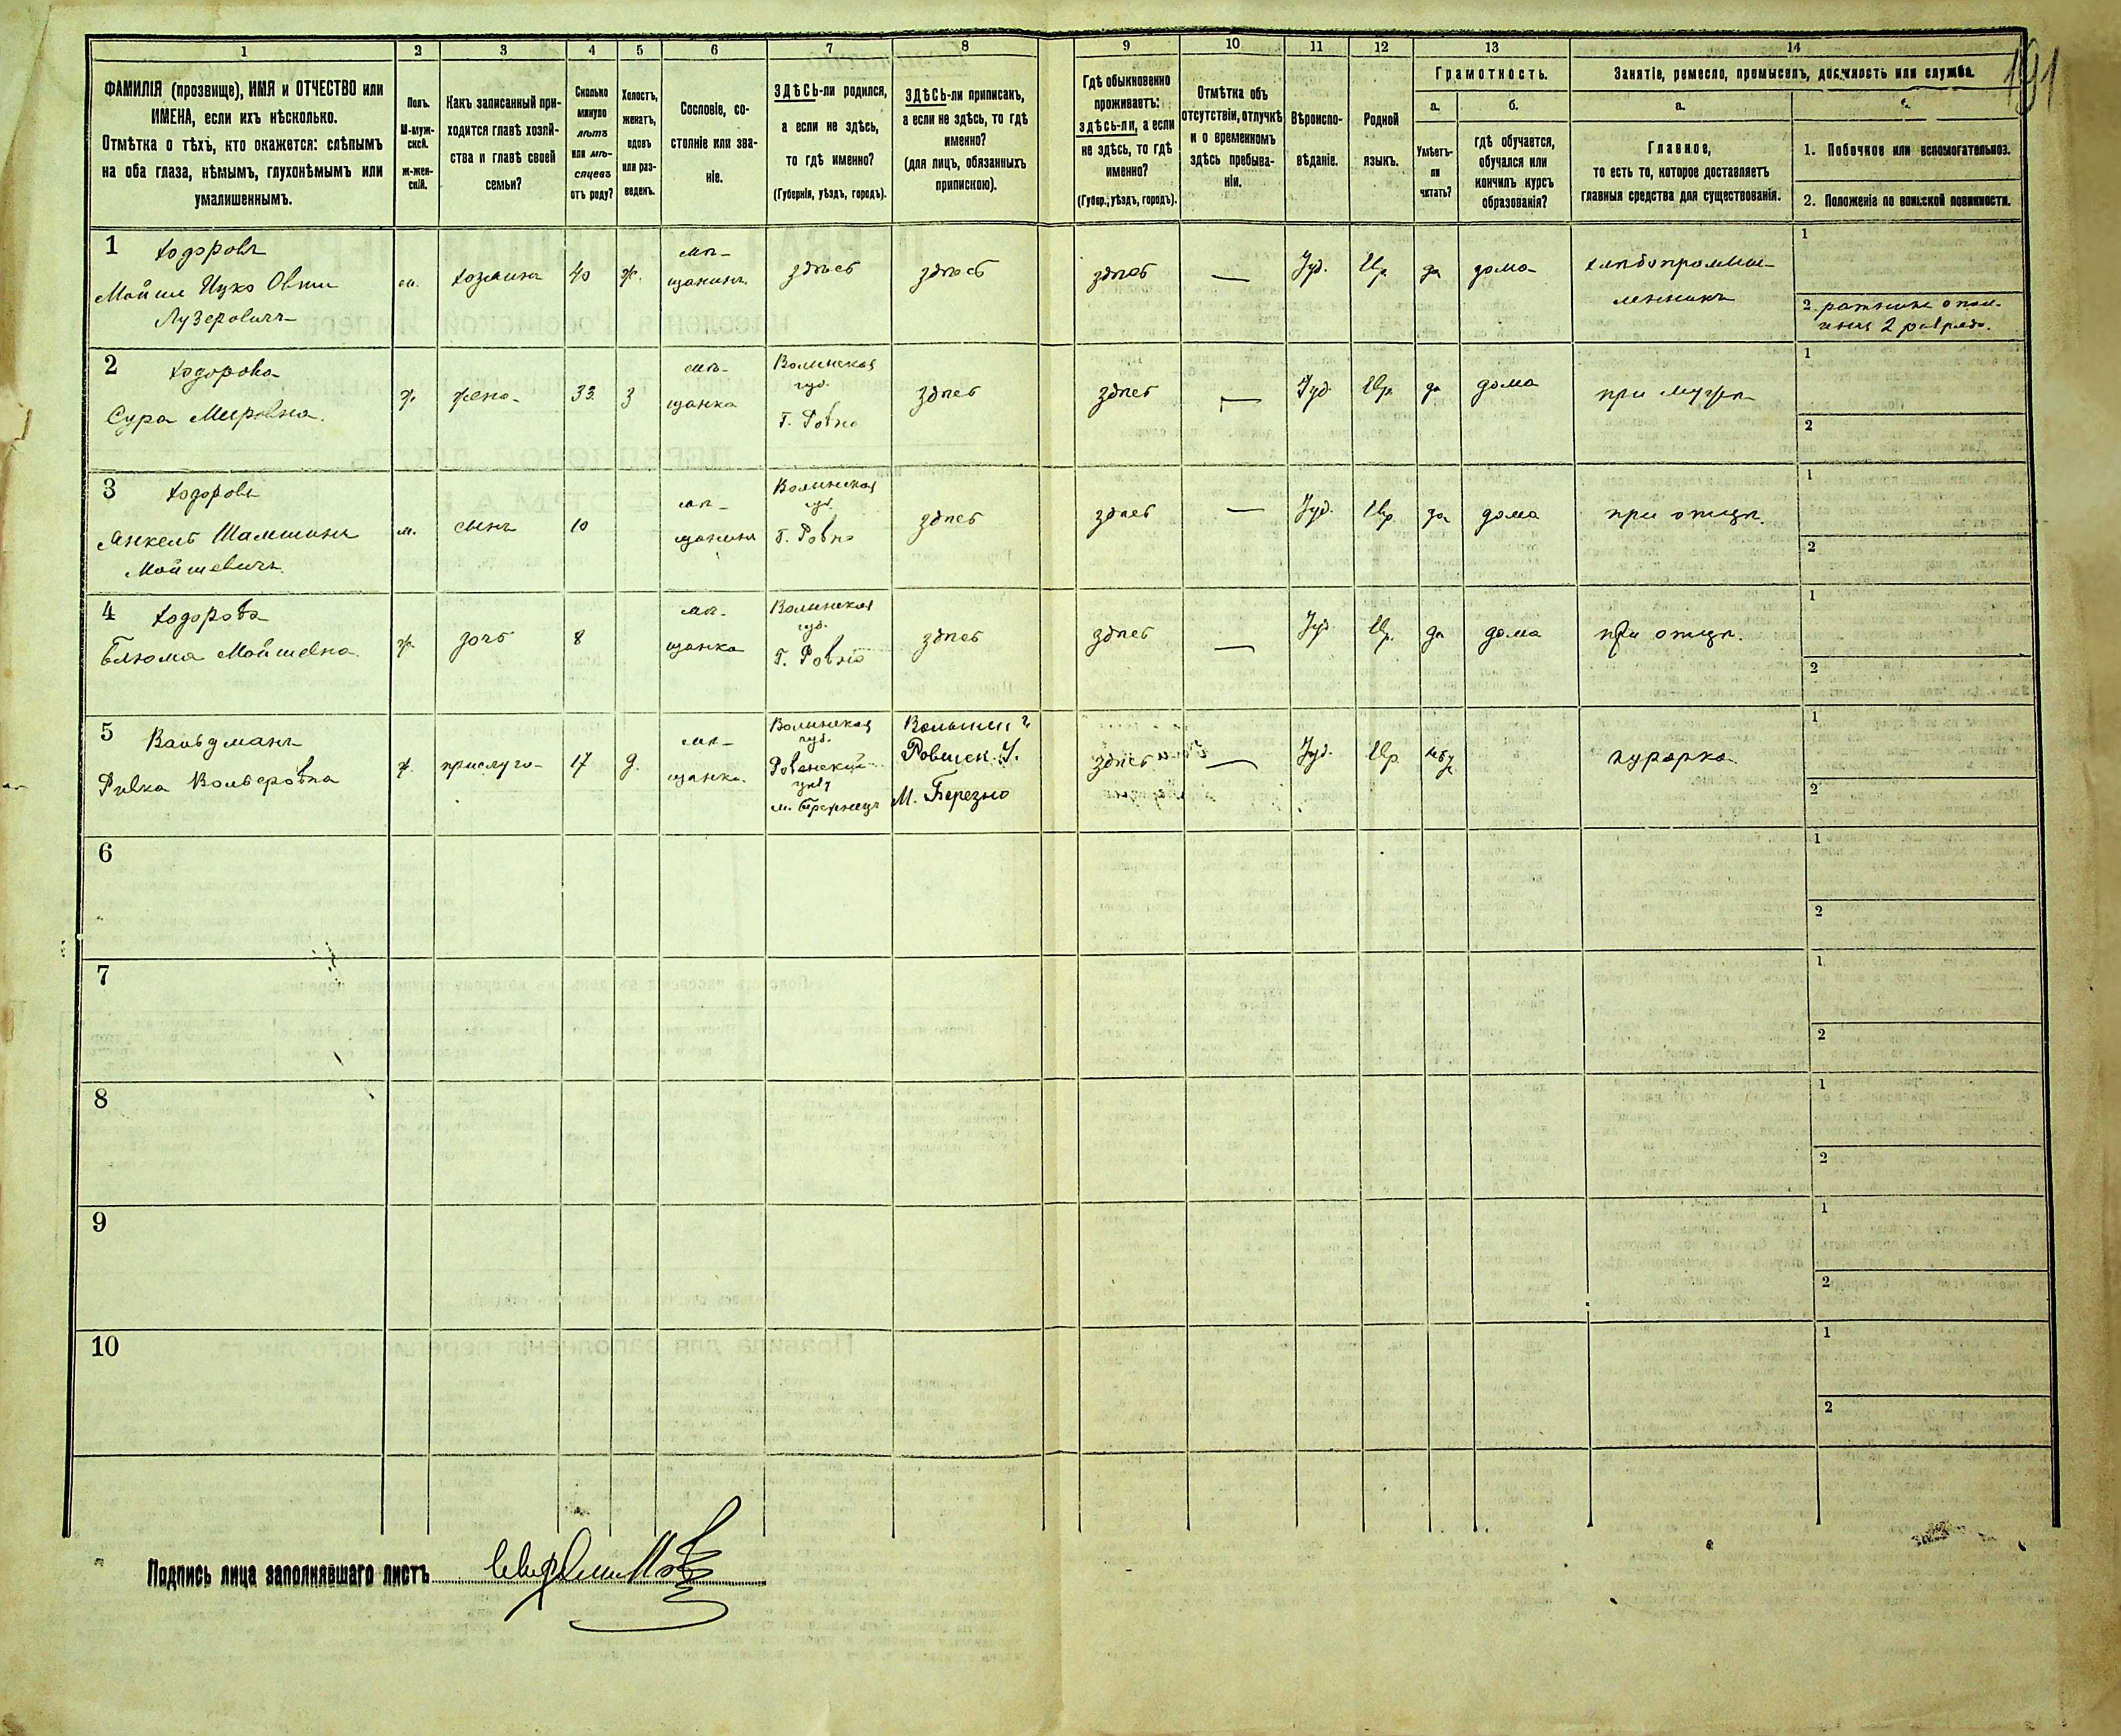 1 2 3 4 5 6 7 8 9 10 11 12 13 14
191
ФАМИЛІЯ (прозвище), ИМЯ и ОТЧЕСТВО или
ИМЕНА, если ихъ нѣсколько.
Отмѣтка о тѣхъ, кто окажется: слѣпымъ
на оба глаза, нѣмымъ, глухонѣмымъ или
умалишеннымъ.
Полъ.
М-муж-
ской.
ж-жен-
скій.
Какъ записанный при-
ходится главѣ хозяй-
ства и главѣ своей
семьи?
Сколько
минуло
лѣтъ
или мѣ-
сяцевъ
отъ роду?
Холостъ,
женатъ,
вдовъ
или раз-
веденъ.
Сословіе, со-
стояніе или зва-
ніе.
ЗДѢСЬ-ли родился,
а если не здѣсь,
то гдѣ именно?
(Губернія, уѣздъ, городъ).
ЗДѢСЬ-ли приписанъ,
а если не здѣсь, то гдѣ
именно?
(для лицъ, обязанныхъ
припискою).
Гдѣ обыкновенно
проживаетъ:
здѣсь-ли, а если
не здѣсь, то гдѣ
именно?
(Губер., уѣздъ, городъ).
Отмѣтка объ
отсутствіи, отлучкѣ
и о временномъ
здѣсь пребыва-
ніи.
Вѣроиспо-
вѣданіе.
Родной
языкъ.
Грамотность.
а.
Умѣетъ-
ли
читать?
б.
гдѣ обучается,
обучался или
кончилъ курсъ
образованія?
Занятіе, ремесло, промыселъ, должность или служба.
а.
Главное,
то есть то, которое доставляетъ
главныя средства для существованія.
1. Побочное или вспомогательное.
2. Положеніе по воинской повинности.
1
Ходоровъ
Мойше Ицко
Лузеровичъ
м.
хозяинъ
40
ж.
мѣ-
щанинъ
здѣсь
здѣсь
здѣсь
—
Іуд.
Евр
да
дома
хлѣбопромыш-
ленникъ
1
2 ратникъ опол-
ченія 2 разряда.
2
Ходорова
Сура Мировна.
ж.
жена
33
з
мѣ-
щанка
Волынская
губ.
г. Ровно
здѣсь
здѣсь
—
Іуд
Евр.
да
дома
при мужѣ
1
2
3
Ходоровъ
Янкель
Мойшевичъ
м.
сынъ
10
мѣ-
щанинъ
Волынская
губ.
г. Ровно
здѣсь
здѣсь
—
Іуд.
Евр.
да
дома
при отцѣ.
1
2
4
Ходорова
Блюма Мойшевна
ж.
дочь
8
мѣ-
щанка
Волынская
губ.
г. Ровно
здѣсь
здѣсь
—
Іуд
Евр.
да
дома
при отцѣ.
1
2
5
Вальдманъ
Ривка Вольфовна
ж.
прислуга
17
д.
мѣ-
щанка.
Волынская
губ.
Ровенскій
уѣзд
м.
Волынск г
Ровенск. У.
М. Березно
здѣсь
—
Іуд.
Евр.
нѣт
кухарка
1
2
6
1
2
7
1
2
8
1
2
9
1
2
10
1
2
Подпись лица заполнявшаго листъ